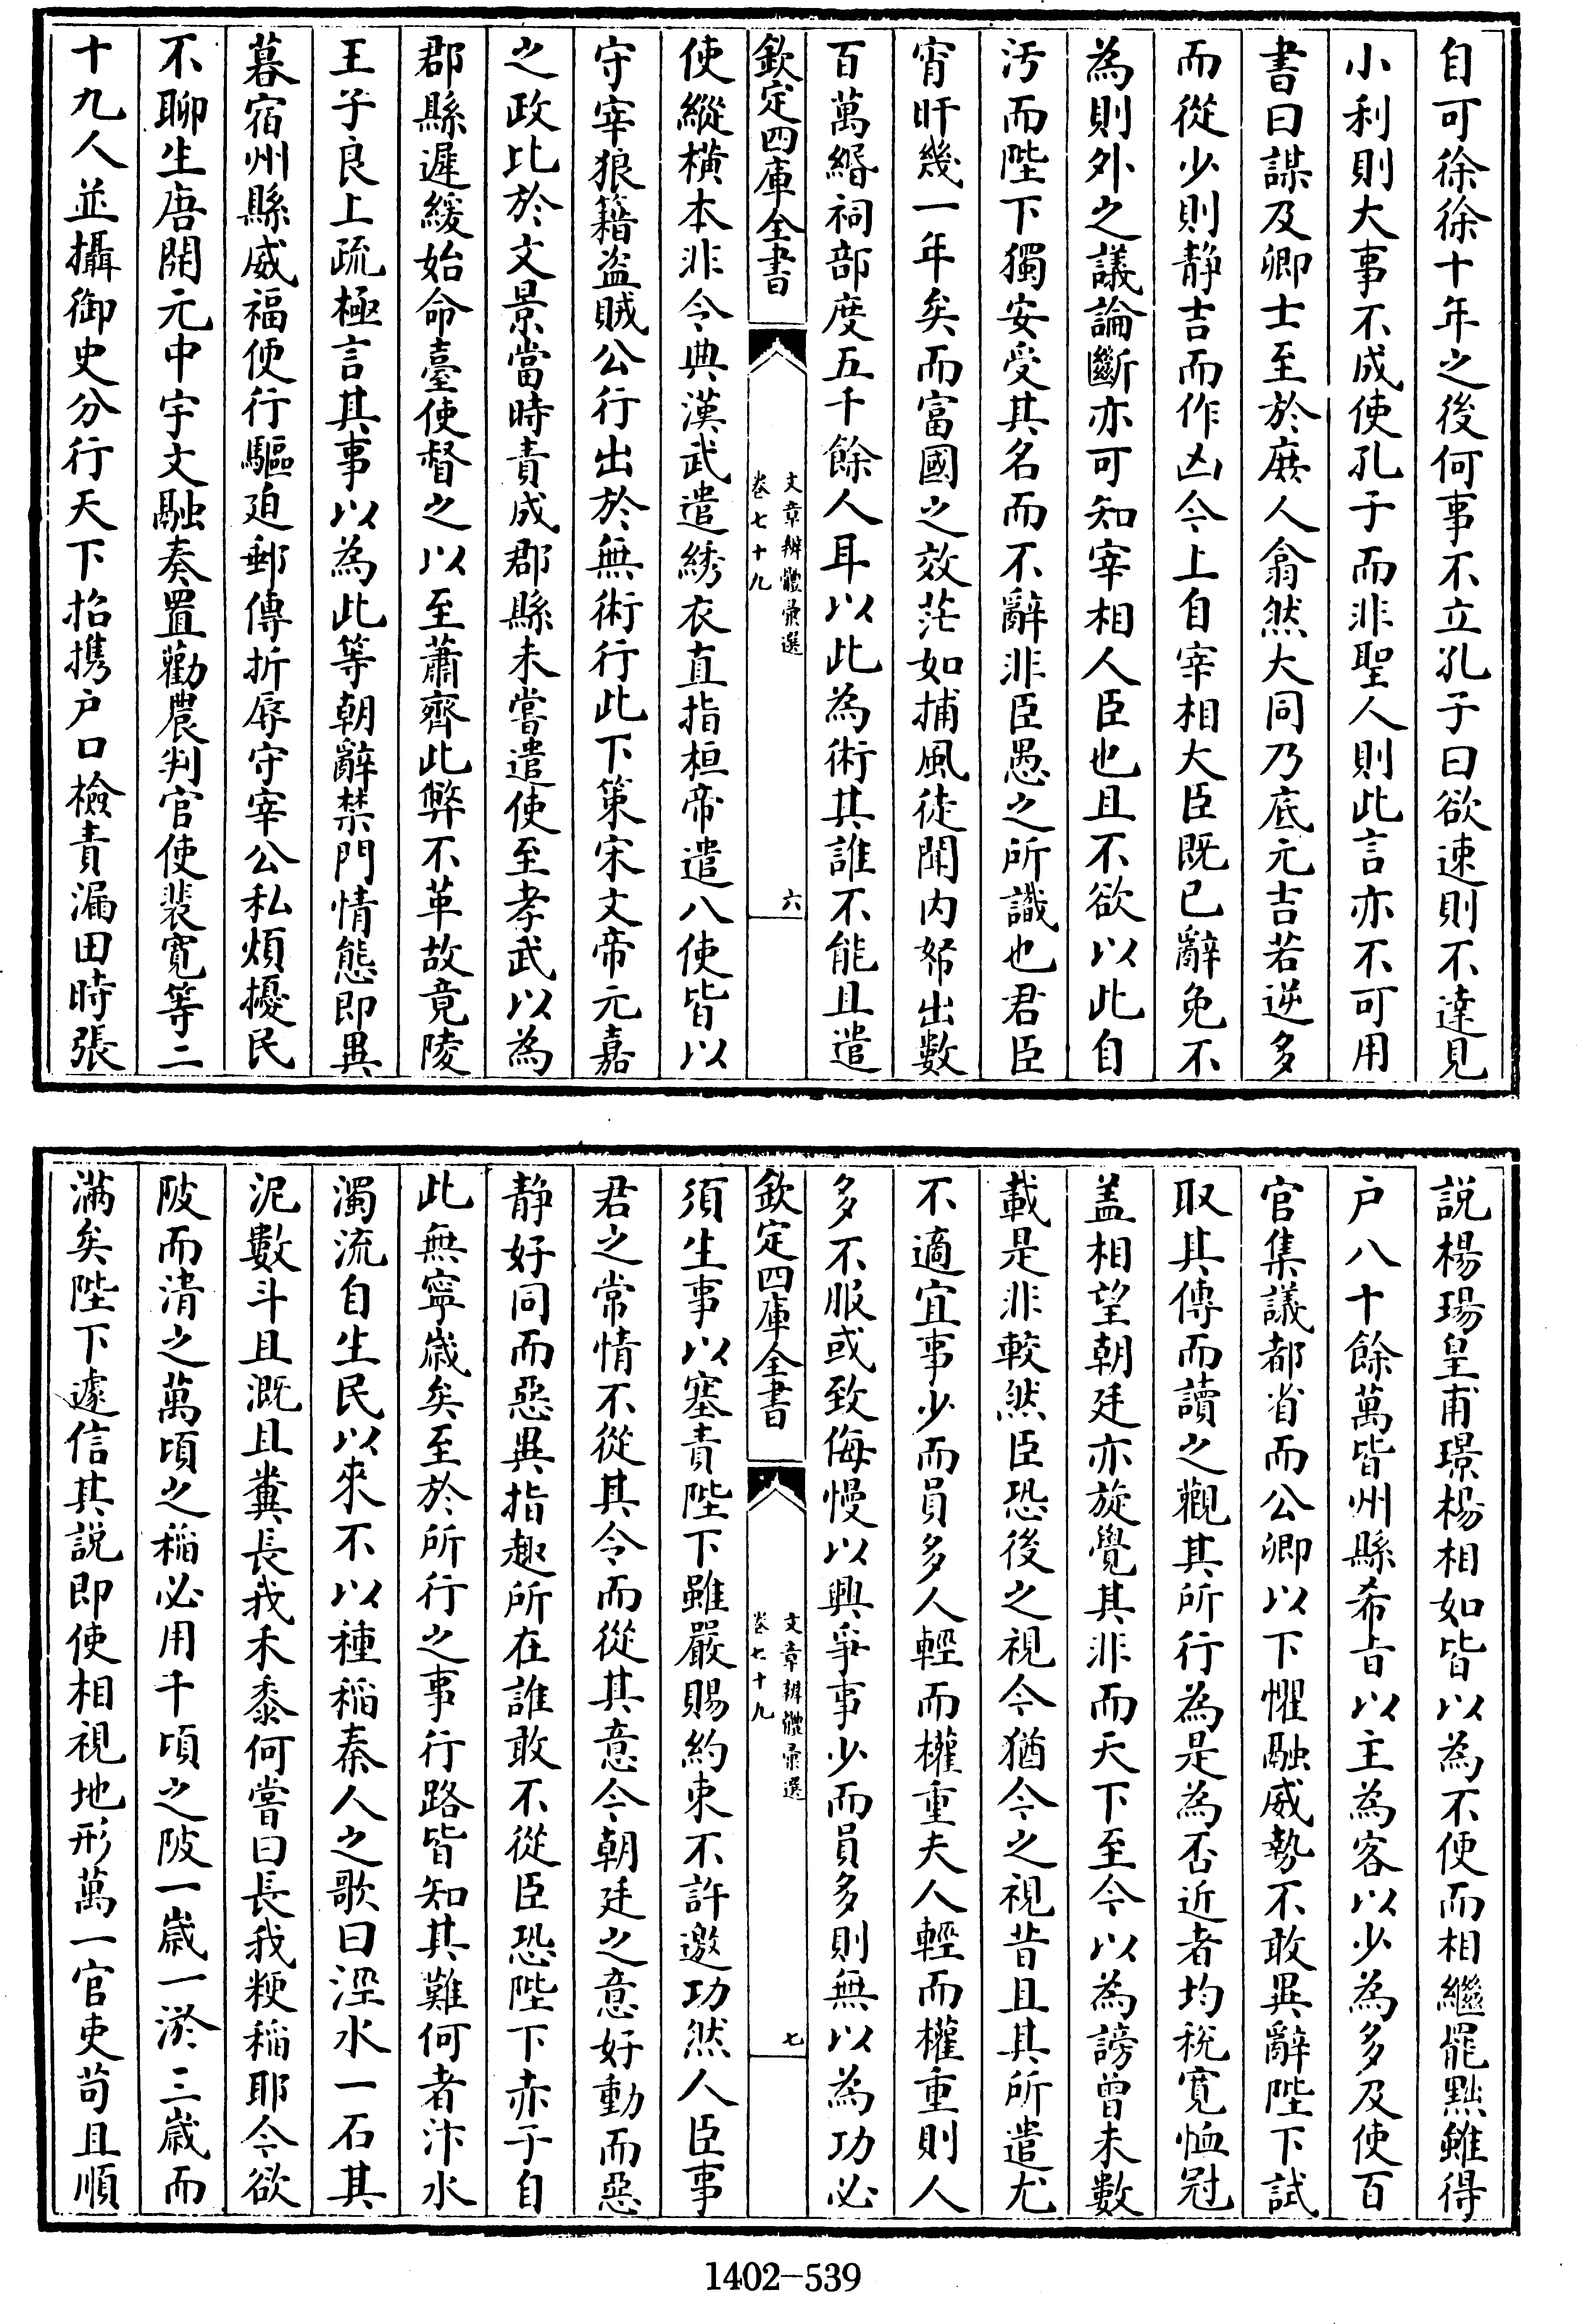 自可徐徐十年之後何事不立孔子曰欲速則不達見
小利則大事不成使孔子而非聖人則此言亦不可用
書曰謀及卿士至於庶人翕然大同乃底元吉若逆多
而從少則静吉而作凶今上自宰相大臣既已辭免不
為則外之議論斷亦可知宰相人臣也且不欲以此自
汚而陛下獨安受其名而不辭非臣愚之所識也君臣
宵旰幾一年矣而富國之效茫如捕風徒聞内帑出數
百萬緡祠部度五千餘人耳以此為術其誰不能且遣
欽定四庫全書
文章辨體彚選
卷七十九
六
使縱横本非令典漢武遣綉衣直指桓帝遣八使皆以
守宰狼籍盗賊公行出於無術行此下策宋文帝元嘉
之政比於文景當時責成郡縣未嘗遣使至孝武以為
郡縣遲緩始命臺使督之以至蕭齊此弊不革故竟陵
王子良上疏極言其事以為此等朝辭禁門情態即異
暮宿州縣威福便行驅迫郵傳折辱守宰公私煩擾民
不聊生唐開元中宇文融奏置勸農判官使裴寛等二
十九人並攝御史分行天下招携户口檢責漏田時張
說楊瑒皇甫璟楊相如皆以為不便而相繼罷黜雖得
户八十餘萬皆州縣希㫖以主為客以少為多及使百
官集議都省而公卿以下懼融威勢不敢異辭陛下試
取其傳而讀之觀其所行為是為否近者均税寛恤冠
盖相望朝廷亦旋覺其非而天下至今以為謗曾未數
載是非較然臣恐後之視今猶今之視昔且其所遣尤
不適宜事少而員多人輕而權重夫人輕而權重則人
多不服或致侮慢以興爭事少而員多則無以為功必
欽定四庫全書
文章辨體彚選
卷七十九
七
須生事以塞責陛下雖嚴賜約束不許邀功然人臣事
君之常情不從其令而從其意今朝廷之意好動而惡
静好同而惡異指趣所在誰敢不從臣恐陛下赤子自
此無寧歲矣至於所行之事行路皆知其難何者汴水
濁流自生民以來不以種稻秦人之歌曰涇水一石其
泥數斗且溉且糞長我禾黍何嘗曰長我粳稻耶今欲
陂而清之萬頃之稻必用千頃之陂一歲一淤三歲而
滿矣陛下遽信其説即使相視地形萬一官吏苟且順
1402-539